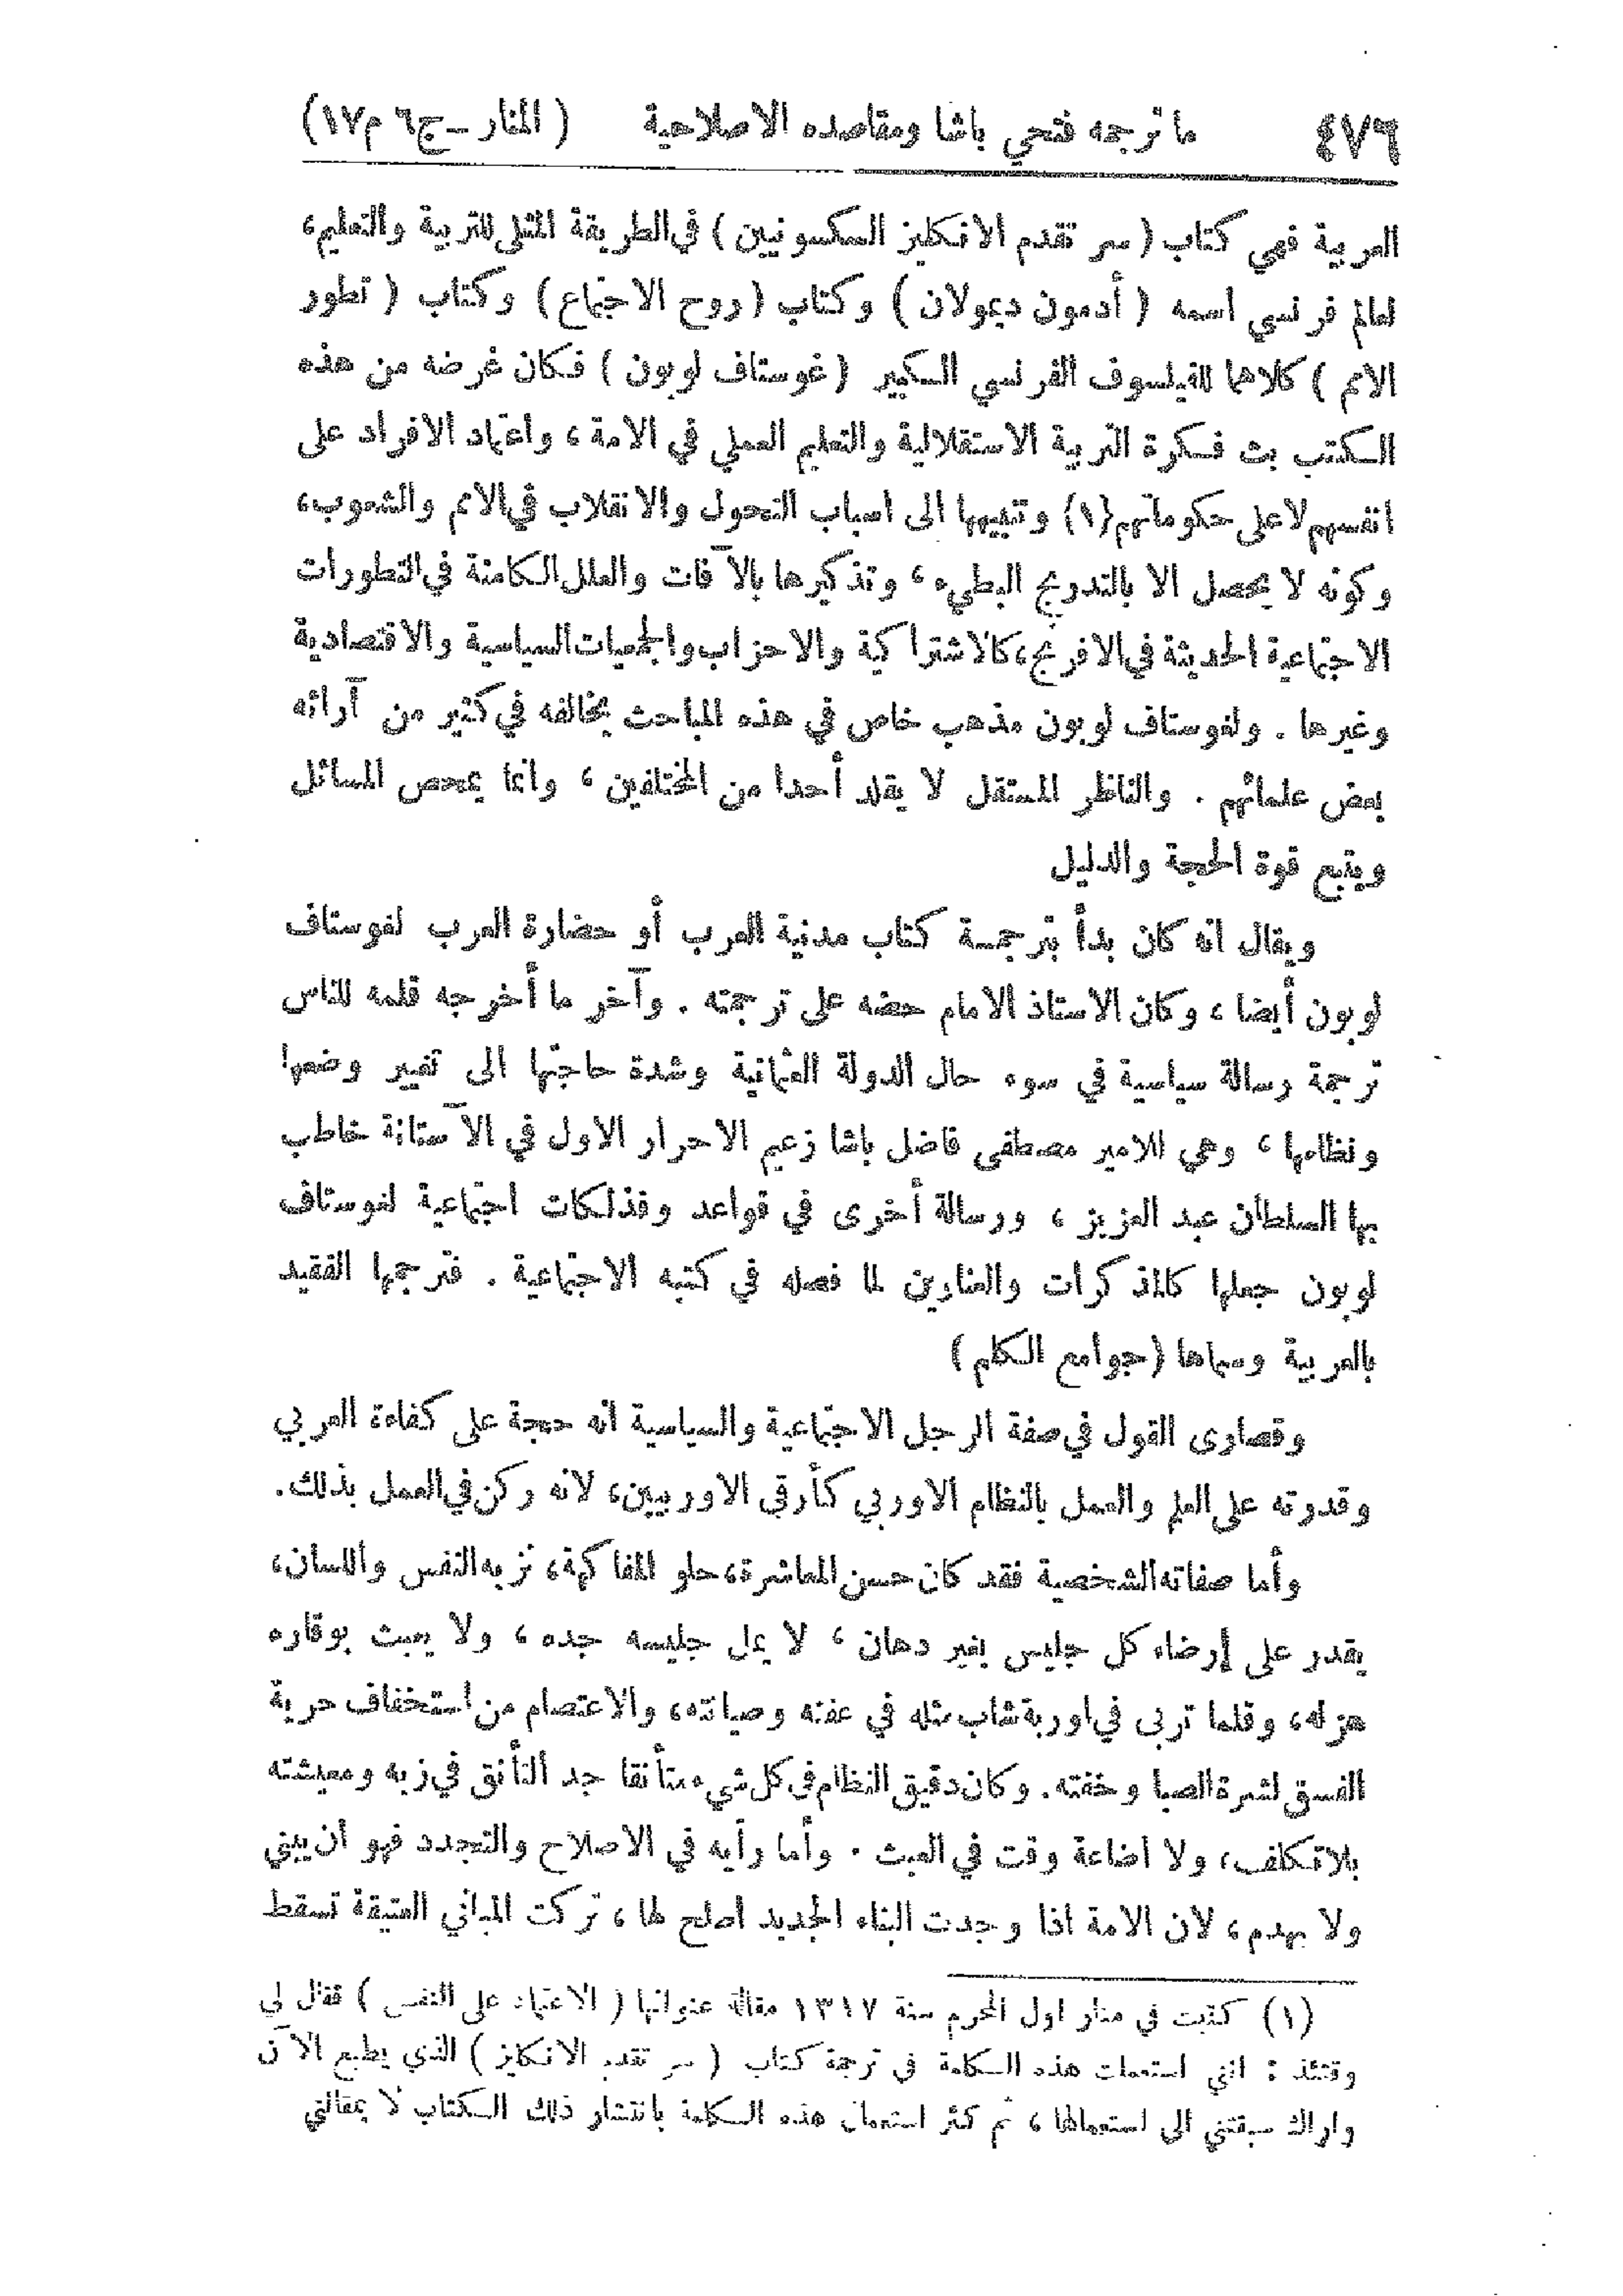 ٤٧٦ ما ترجمه فتحي باشا ومقاصده الاصلاحية ( المنار ـ ج٦ م١٧)
العربية فهي كتاب ( سر تقدم الانكليز السكسونيين ) في الطريقة المثلى للتربية والتعليم،
لعالم فرنسي اسمه ( أدمون ديمولان ) وكتاب ( روح الاجتماع ) وكتاب ( تطور
الامم ) كلاهما للفيلسوف الفرنسي الكبير ( غوستاف لوبون ) فكان غرضه من هذه
الكتب بث فكرة التربية الاستقلالية والتعليم العملي في الامة ، واعتماد الافراد على
انفسهم لا على حكوماتهم (١) وتنبيهها الى اسباب التحول والانقلاب في الامم والشعوب،
وكونه لا يحصل الا بالتدريج البطيء ، وتذكيرها بالآفات والعلل الكامنة في التطورات
الاجتماعية الحديثة في الافرنج، كالاشتراكية والاحزاب والجمعيات السياسية والاقتصادية
وغيرها . ولغوستاف لوبون مذهب خاص في هذه المباحث يخالفه في كثير من آرائه
بعض علمائهم . والناظر المستقل لا يقلد أحدا من المختلفين ، وانما يمحص المسائل
ويتبع قوة الحجة والدليل
ويقال انه كان بدأ بترجمة كتاب مدنية العرب أو حضارة العرب لغوستاف
لوبون أيضا ، وكان الاستاذ الامام حضه على ترجمته . وآخر ما أخرجه قلمه للناس
ترجمة رسالة سياسية في سوء حال الدولة العثمانية وشدة حاجتها الى تغيير وضعها
ونظامها ، وهي للامير مصطفى فاضل باشا زعيم الاحرار الاول في الآستانة خاطب
بها السلطان عبد العزيز ، ورسالة أخرى في قواعد وفذلكات اجتماعية لغوستاف
لوبون جعلها كالمذكرات والعناوين لما فصله في كتبه الاجتماعية . فترجمها الفقيد
بالعربية وسماها ( جوامع الكلم )
وقصارى القول في صفة الرجل الاجتماعية والسياسية انه حجة على كفاءة العربي
وقدرته على العلم والعمل بالنظام الاوربي كأرقى الاوربيين، لانه ركن في العمل بذلك.
وأما صفاته الشخصية فقد كان حسن المعاشرة، حلو المفاكهة، نزيه النفس واللسان،
يقدر على إرضاء كل جليس بغير دهان ، لا يمل جليسه جده ، ولا يعبث بوقاره
هزله، وقلما تربى في اوربة شاب مثله في عفته وصيانته، والاعتصام من استخفاف حرية
الفسق لشرة الصبا وخفته. وكان دقيق النظام في كل شيء متأنقا جد التأنق في زيه ومعيشته
بلا تكلف، ولا اضاعة وقت في العبث . وأما رأيه في الاصلاح والتجدد فهو أن يبني
ولا يهدم، لان الامة اذا وجدت البناء الجديد أصلح لها ، تركت المباني العتيقة تسقط
(١) كتبت في منار اول المحرم سنة ١٣١٧ مقالة عنوانها ( الاعتماد على النفس ) فقال لي
وقتئذ : انني استعملت هذه الكلمة في ترجمة كتاب ( سر تقدم الانكليز ) الذي يطبع الآن
واراك سبقتني الى استعمالها ، ثم كثر استعمال هذه الكلمة بانتشار ذلك الكتاب لا بمقالتي